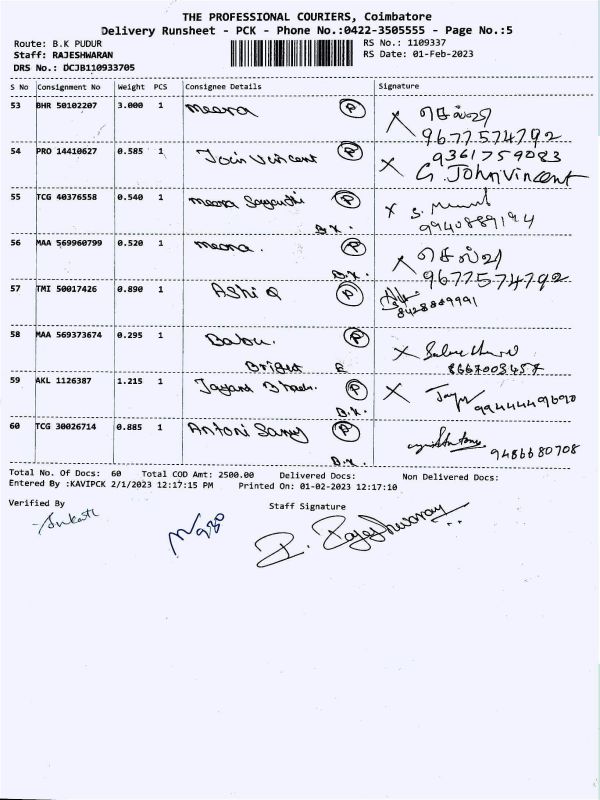 THE PROFESSIONAL COURIERS, Coimbatore
Delivery Runsheet - PCK - Phone No.:0422-3505555 - Page No.:5
Route: B.K PUDUR RS No.: 1109337
Staff: RAJESHWARAN RS Date: 01-Feb-2023
DRS No.: DCJB110933705
S No Consignment No Weight PCS Consignee Details Signature
53 BHR 50102207 3.000 1 meera P X செல்வி
9677574792
54 PRO 14410627 0.585 1 Join Vincent P X 9361759083
G. John Vincent
55 TCG 40376558 0.540 1 meera P X S.
B.K. 9940889194
56 MAA 569960799 0.520 1 meera. P X செல்வி
B.K. 9677574792
57 TMI 50017426 0.890 1 Ashiq P
8428889991
58 MAA 569373674 0.295 1 Babu. P X
Bright E 8667003457
59 AKL 1126387 1.215 1 P X
B.K. 9944449690
60 TCG 30026714 0.885 1 Antoni Samy P
B.K. 9486680708
Total No. Of Docs: 60 Total COD Amt: 2500.00 Delivered Docs: Non Delivered Docs:
Entered By :KAVIPCK 2/1/2023 12:17:15 PM Printed On: 01-02-2023 12:17:10
Verified By Staff Signature
980
R. Rajeshwaran